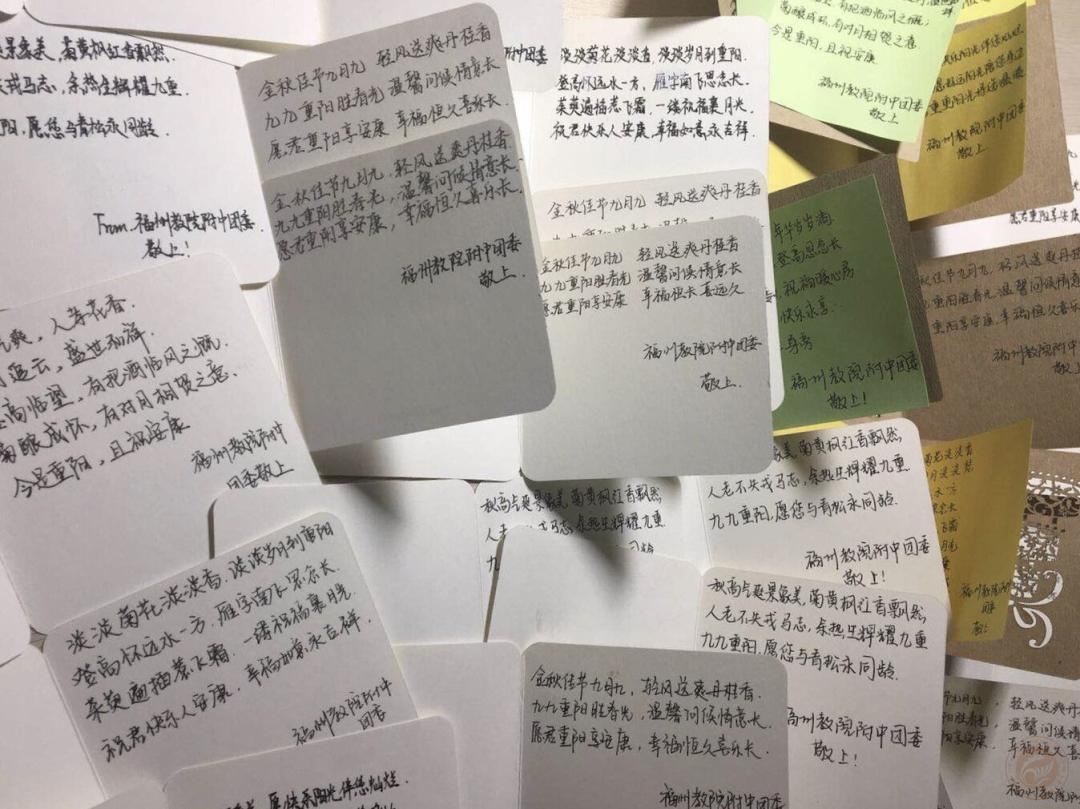 菊黄枫红香飘然
戎马志，余热生辉耀九重
阳，愿您与青松永同龄.
From 福州教院附中团委
敬上！
金秋佳节九月九 轻风送爽丹桂香
九九重阳胜春光 温馨问候情意长
愿君重阳享安康 幸福恒久喜乐长
金秋佳节九月九，轻风送爽丹桂香.
九九重阳胜春光，温馨问候情意长.
愿君重阳享安康，幸福恒久喜乐长.
福州教院附中团委
敬上.
中团委
淡淡菊花淡淡香，淡淡岁月到重阳
登高怀远水一方，雁字南飞思念长.
茱萸遍插惹飞霜，一缕祝福裹月光
祝君快乐人安康，幸福如意永吉祥.
金秋佳节九月九 轻风送爽丹桂香
金秋佳节九月九 轻风送爽丹桂香
九九重阳胜春光 温馨问候情意长
愿君重阳享安康 幸福恒长喜远久
福州教院附中团委
敬上.
有把酒临风之慨；
菊酿成怀，有对月相贺之意
今是重阳，且祝安康
福州教院附中团委
敬上
福州教院附中团委
敬上
年华岁岁淌
登高思念长
祝福暖心房
快乐永享
福州教院附中团委
敬上！
佳节九月九，轻风送爽丹桂
重阳胜春光，温馨问候情意
重阳享安康，幸福恒久喜乐
福州教院附中团
敬上
爽，人寿花香.
盛世和祥
高临望，有把酒临风之慨，
菊酿成怀，有对月相贺之意.
今是重阳，且祝安康
福州教院附中
团委敬上
秋高气爽景最美，菊黄枫红香飘然
最美，菊黄枫红香飘然，
人老不失戎马志，余热生辉耀九重
九九重阳，愿您与青松永同龄.
福州教院附中团委
敬上！
淡淡菊花淡淡香，淡淡岁月到重阳
登高怀远水一方，雁字南飞思念长
茱萸遍插惹飞霜，一缕祝福裹月光
祝君快乐人安康，幸福如意永吉祥.
福州教院附中
团委
秋高气爽景最美，菊黄枫红香飘然，
人老不失戎马志，余热生辉耀九重
九九重阳，愿您与青松永同龄.
福州教院附中团委
敬上！
金秋佳节九月九，轻风送爽丹桂香.
九九重阳胜春光，温馨问候情意长.
愿君重阳享安康，幸福恒久喜乐长.
福州教院附中团委
节九月九，轻风送爽
阳胜春光，温馨问候情
享安康，幸福恒久喜
福州教院附中
愿快乐阳光伴您灿烂